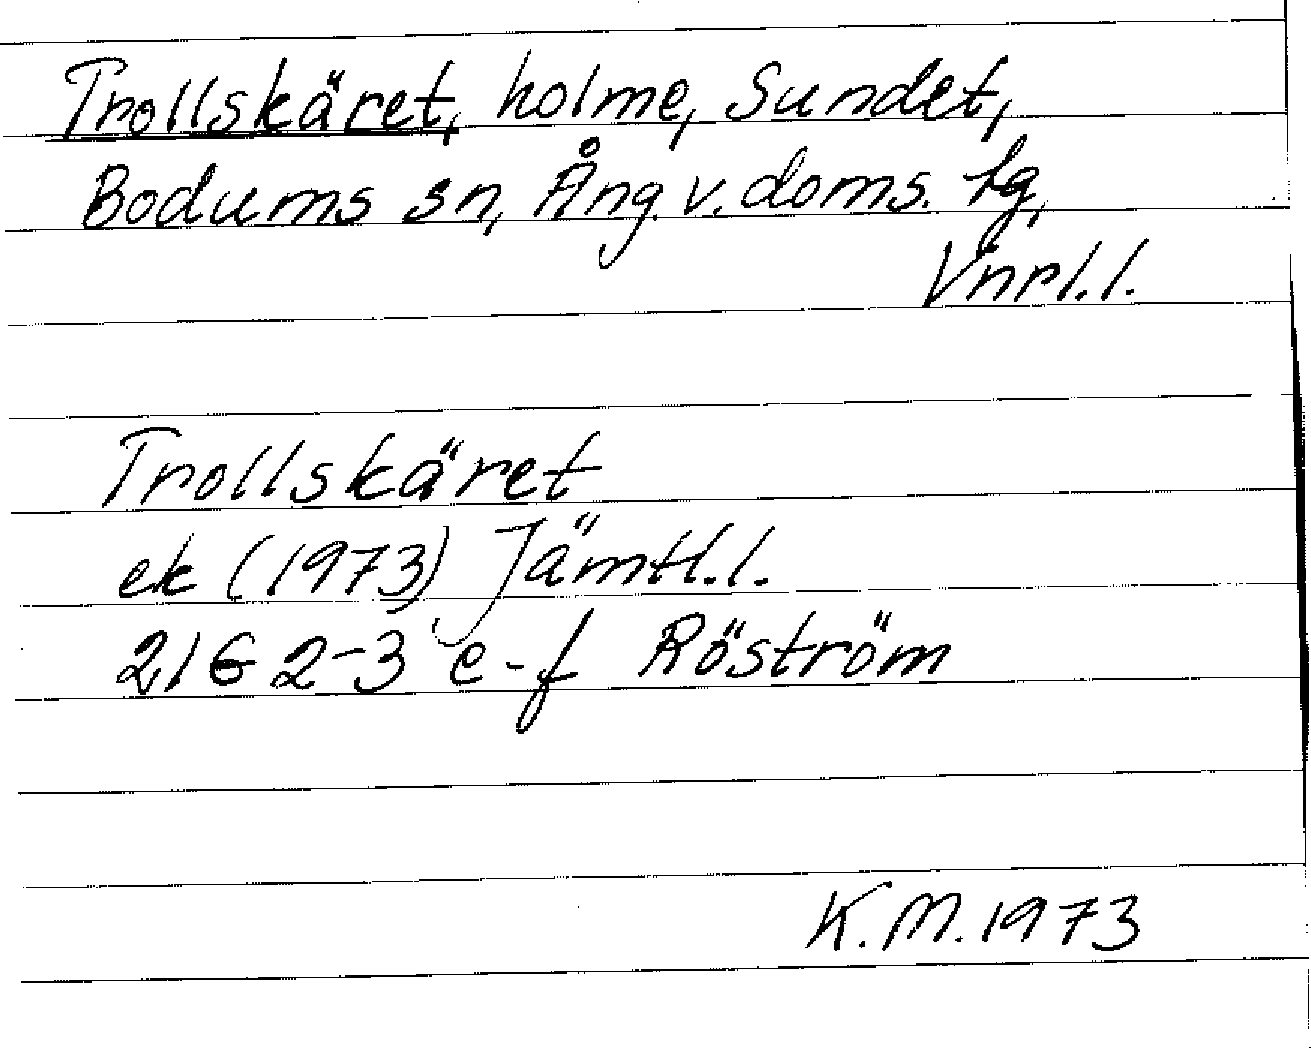 Trollskäret, holme, Sundet,
Bodums sn, Ång. v. doms. tg,
Vnrl. l.
Trollskäret
ek (1973) Jämtl. l.
21G 2-3 e-f Röström
K. M. 1973